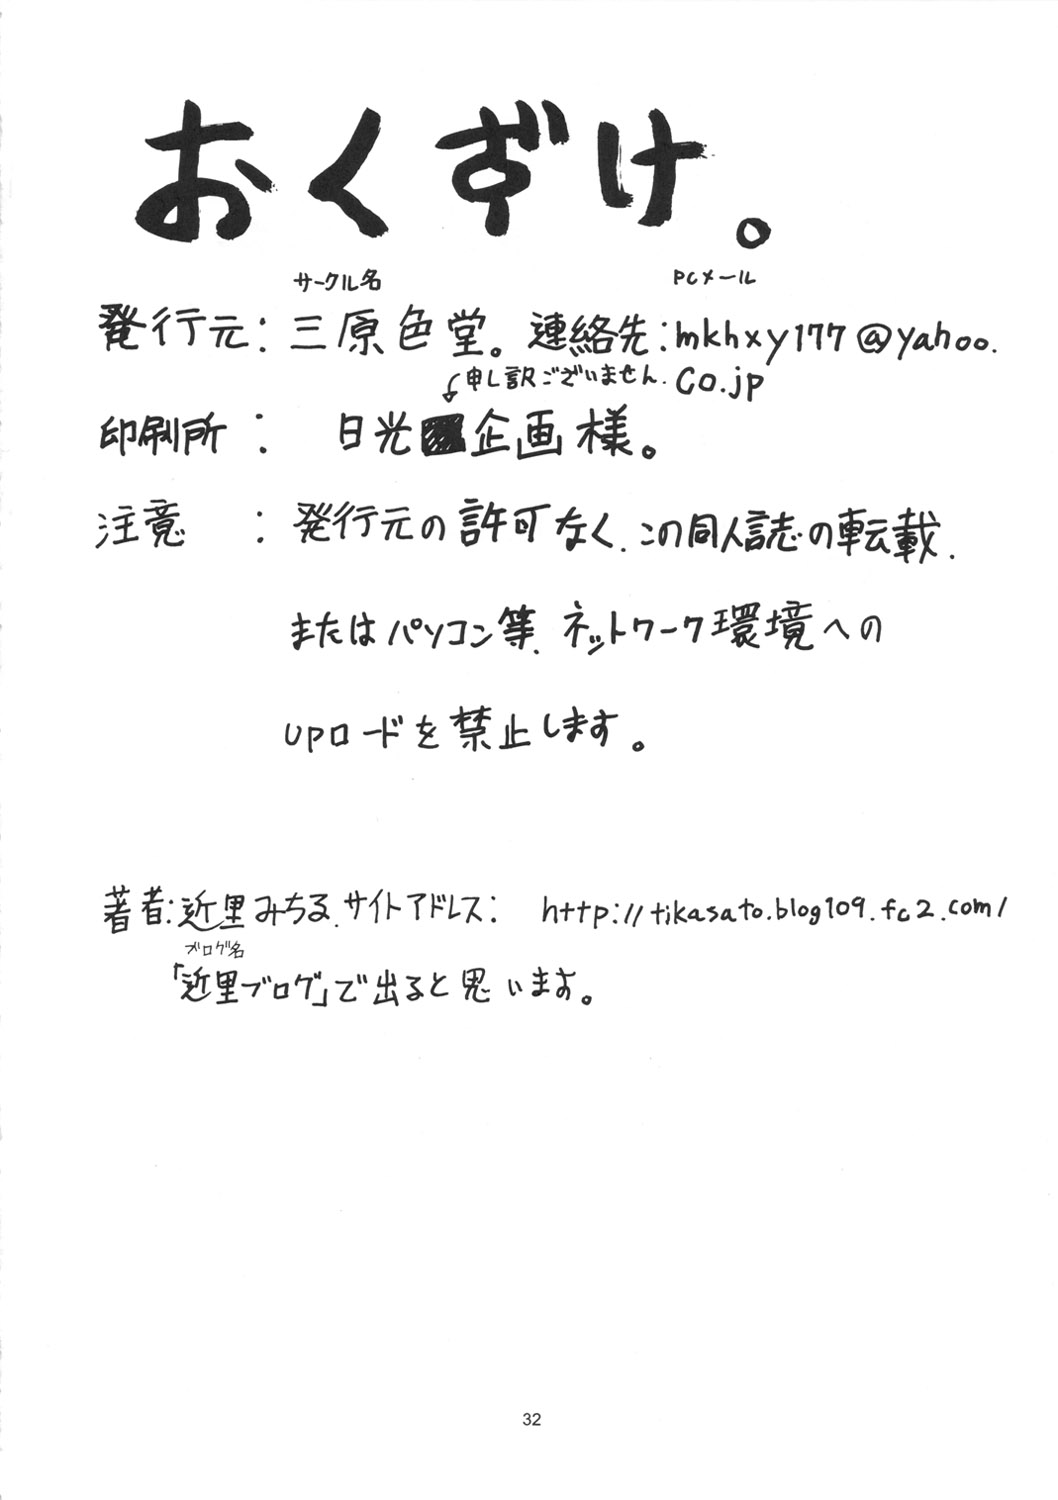 おくずけ。
サークル名 PCメール
発行元：三原色堂。連絡先：mkhxy177@yahoo.
申し訳ございません. co.jp
印刷所：日光企画様。
注意：発行元の許可なく、この同人誌の転載、
またはパソコン等、ネットワーク環境への
upロードを禁止します。
著者：近里みちる、サイトアドレス：http://tikasato.blog109.fc2.com/
ブログ名
「近里ブログ」で出ると思います。
32